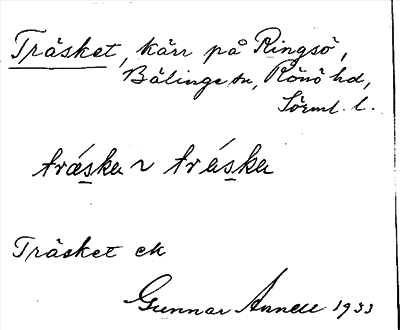 Träsket, kärr på Ringsö,
Bälinge sn, Rönö hd,
Sörml. l.
träsket ~ träska
Träsket ek
Gunnar Annell 1933